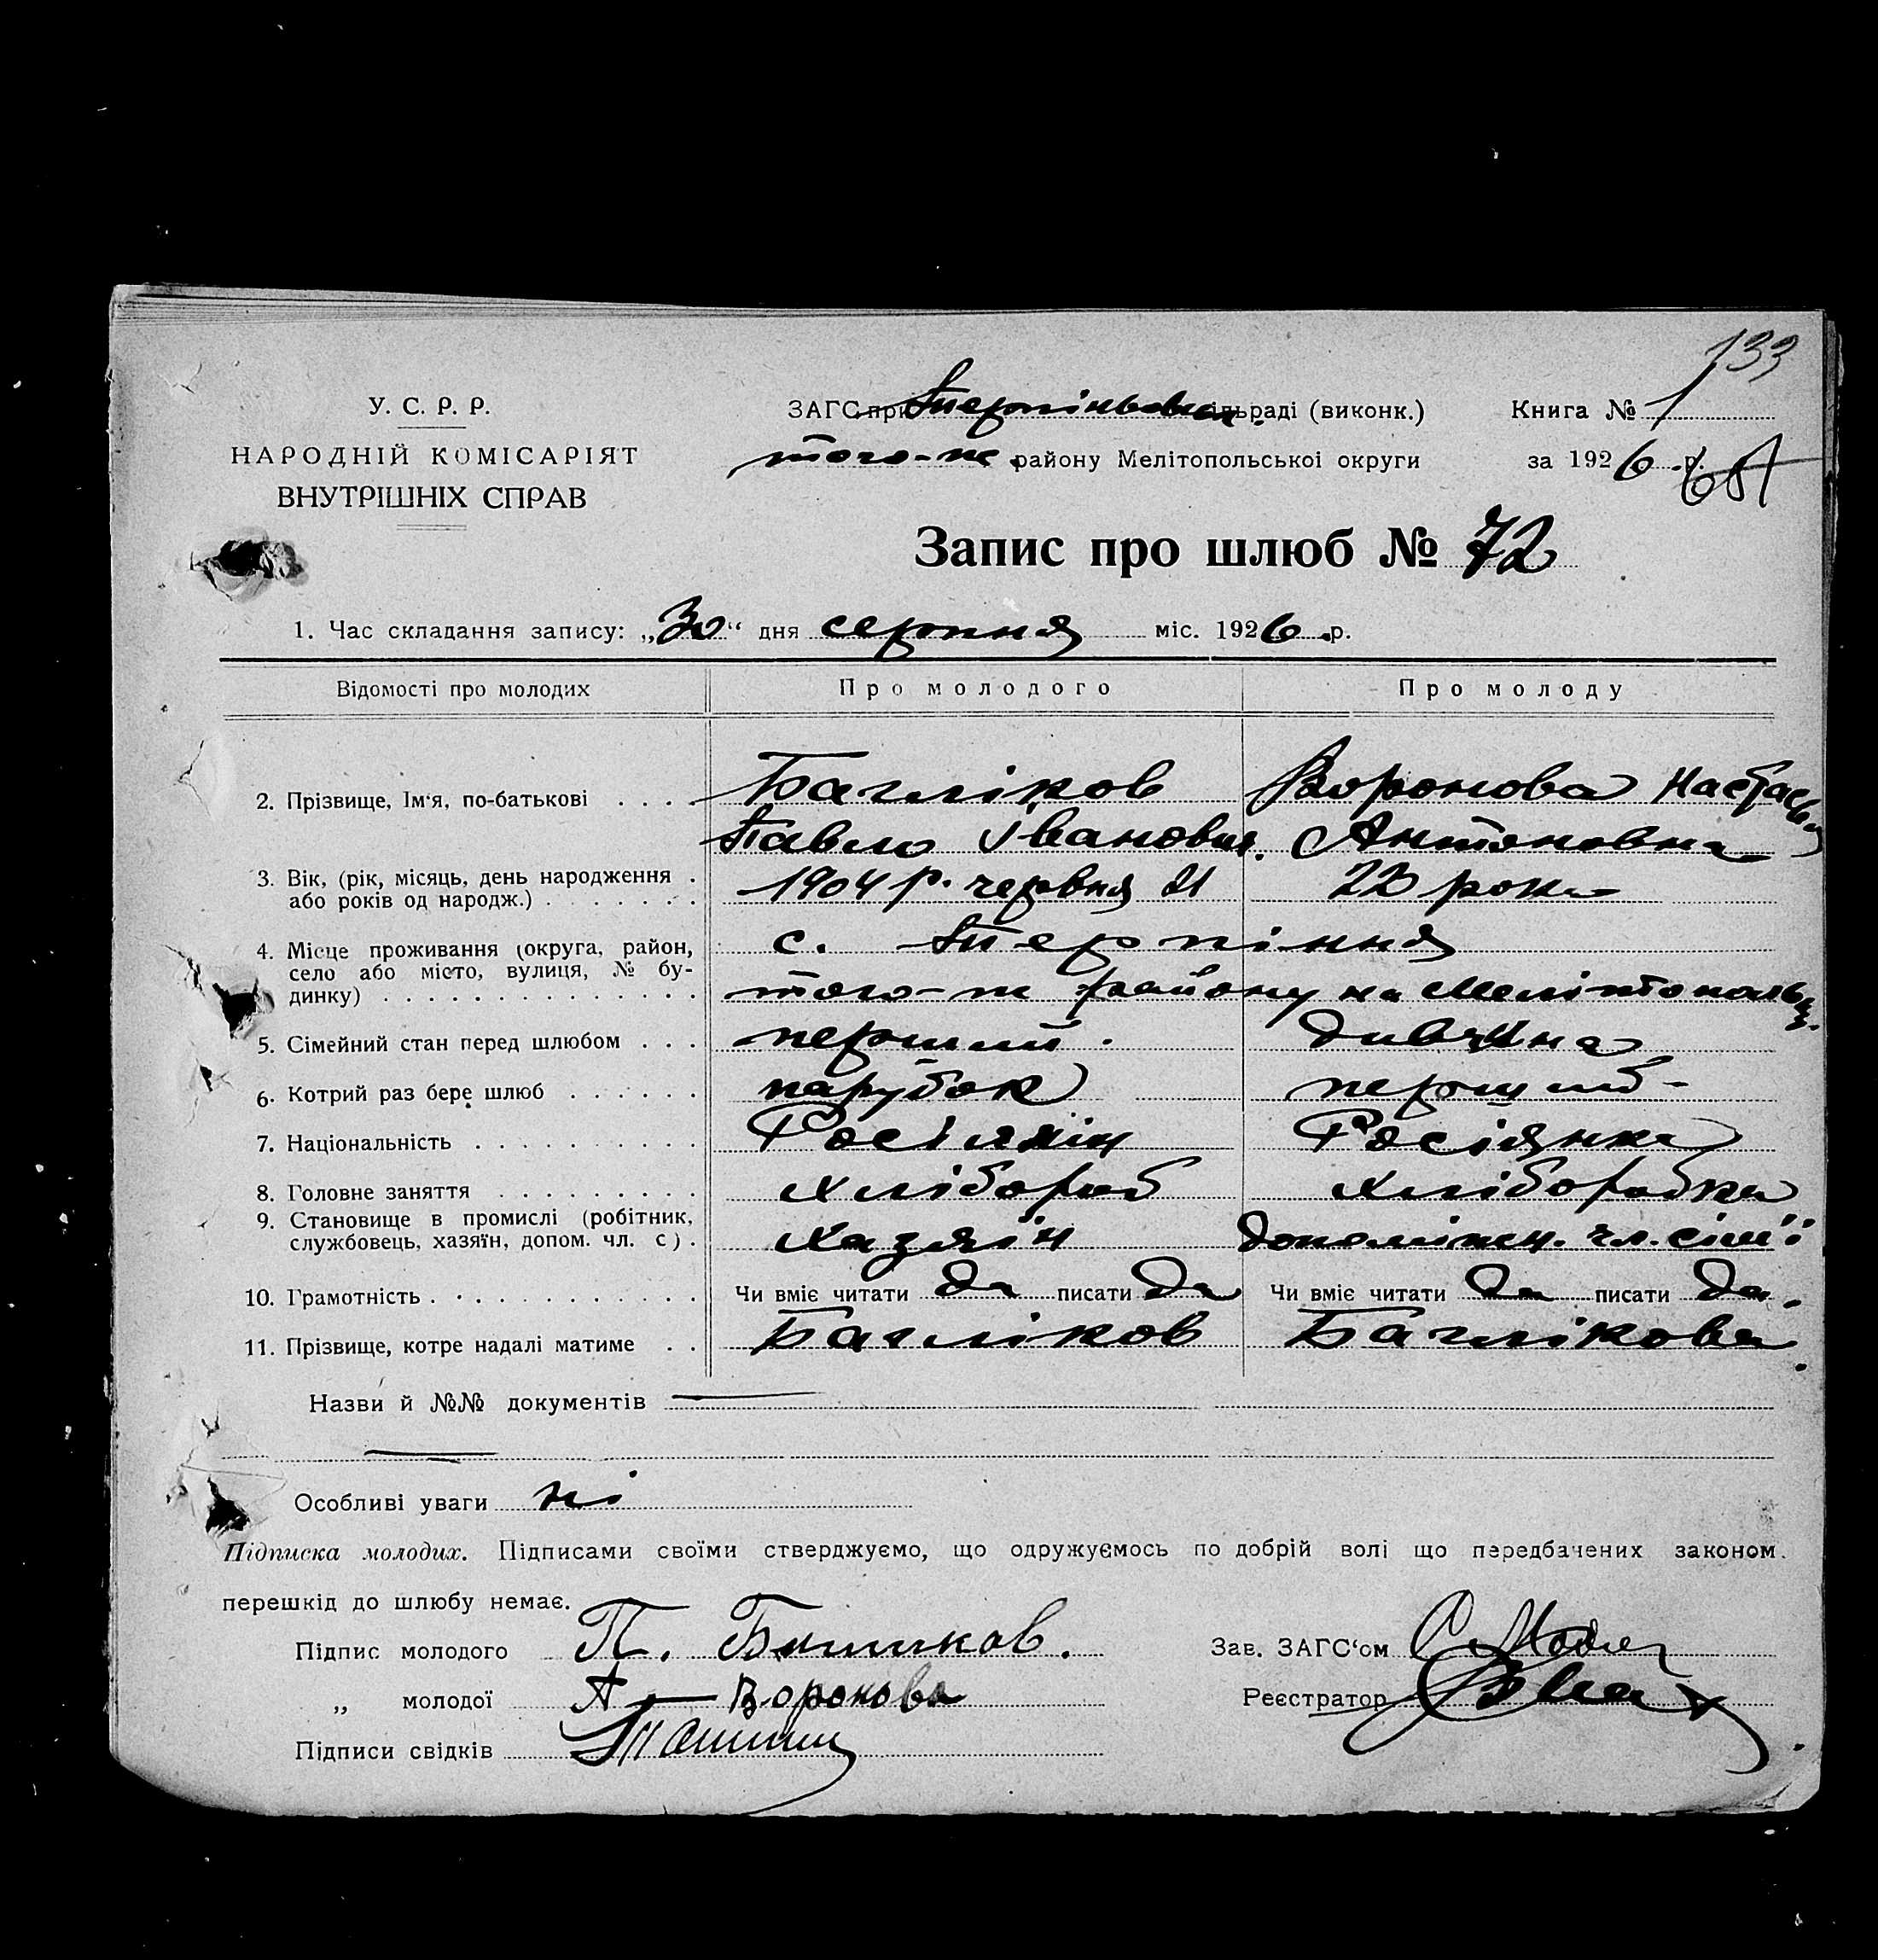 133
У. С. Р. Р.
НАРОДНІЙ КОМІСАРІЯТ
ВНУТРІШНІХ СПРАВ
ЗАГС при Терпіньівськ. сільраді (виконк.)
того-ж району Мелітопольської округи
Книга № 1
за 1926 р.
Запис про шлюб № 72
1. Час складання запису: „30“ дня серпня міс. 1926 р.
Відомості про молодих Про молодого Про молоду
2. Прізвище, Ім‘я, по-батькові . . . . Багліков Воронова Настасья
Павло Іванович. Антоновна
3. Вік, (рік, місяць, день народження . або років од народж.) . . . . . . . 1904 р. червня 21 22 роки
4. Місце проживання (округа, район, село або місто, вулиця, № будинку) . . . . . . . . . . . . . . с. Терпіння
того-ж району на Мелітопольщ.
5. Сімейний стан перед шлюбом . . . перший. дивчина
6. Котрий раз бере шлюб . . . . . . парубок перший-
7. Національність . . . . . . . . . . Росіянін Росіянка
8. Головне заняття . . . . . . . . . хлібороб хліборобка
9. Становище в промислі (робітник, службовець, хазяїн, допом. чл. с) . хазяїн допоміжн. чл. сімʼї
10. Грамотність . . . . . . . . . . . . Чи вміє читати да писати да Чи вміє читати да писати да.
11. Прізвище, котре надалі матиме . . Багліков Баглікова.
Назви й №№ документів
Особливі уваги ні
Підписка молодих. Підписами своїми стверджуємо, що одружуємось по добрій волі що передбачених законом.
перешкід до шлюбу немає.
Підпис молодого П. Багликов.
„ молодої А Воронова
Підписи свідків
Зав. ЗАГС‘ом
Реєстратор